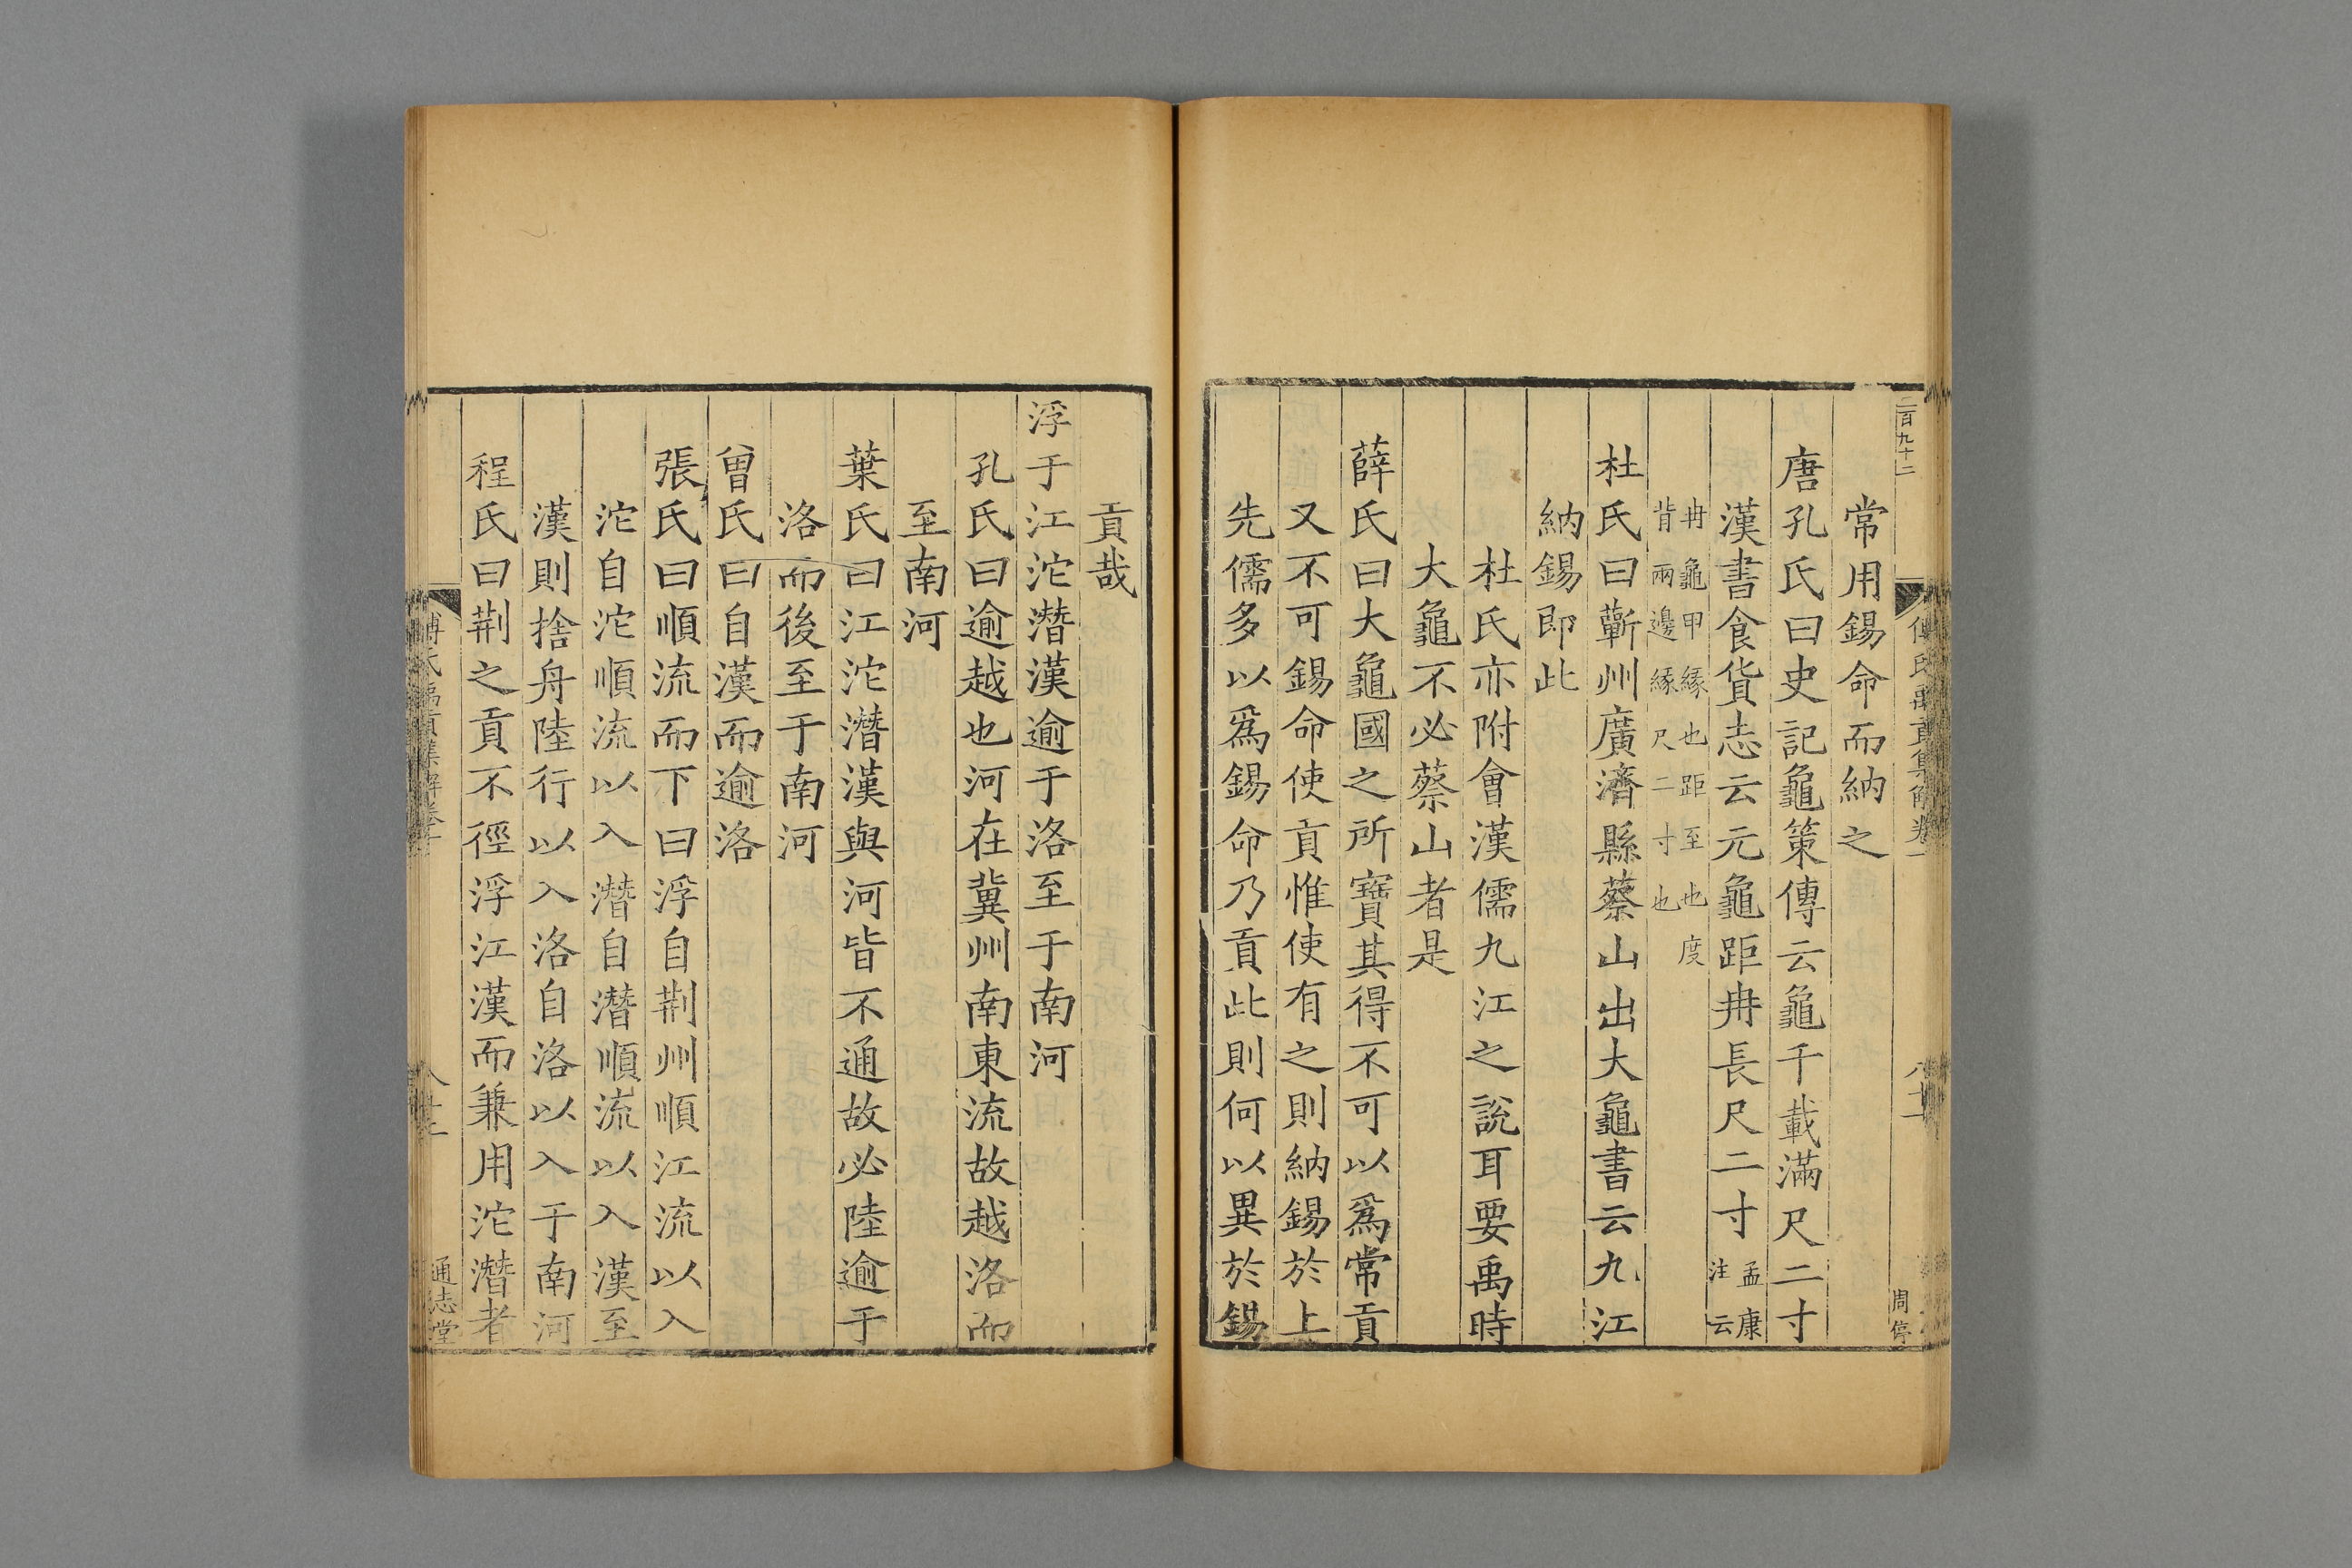 二百九十二
常用錫命而納之
唐孔氏曰史記龜策傳云龜千載滿尺二寸
漢書食貨志云元龜距冉長尺二寸孟康注云
冉龜甲緣也距至也度
背兩邊緣尺二寸也
杜氏曰蘄州廣濟縣蔡山出大龜書云九江
納錫即此
杜氏亦附會漢儒九江之說耳要禹時
大龜不必蔡山者是
薛氏曰大龜國之所寶其得不可以爲常貢
又不可錫命使貢惟使有之則納錫於上
先儒多以爲錫命乃貢此則何以異於錫
周停
貢哉
浮于江沱潛漢逾于洛至于南河
孔氏曰逾越也河在冀州南東流故越洛而
至南河
葉氏曰江沱潛漢與河皆不通故必陸逾于
洛而後至于南河
曾氏曰自漢而逾洛
張氏曰順流而下曰浮自荆州順江流以入
沱自沱順流以入潛自潛順流以入漢至
漢則捨舟陸行以入洛自洛以入于南河
程氏曰荆之貢不徑浮江漢而兼用沱潛者
通志堂